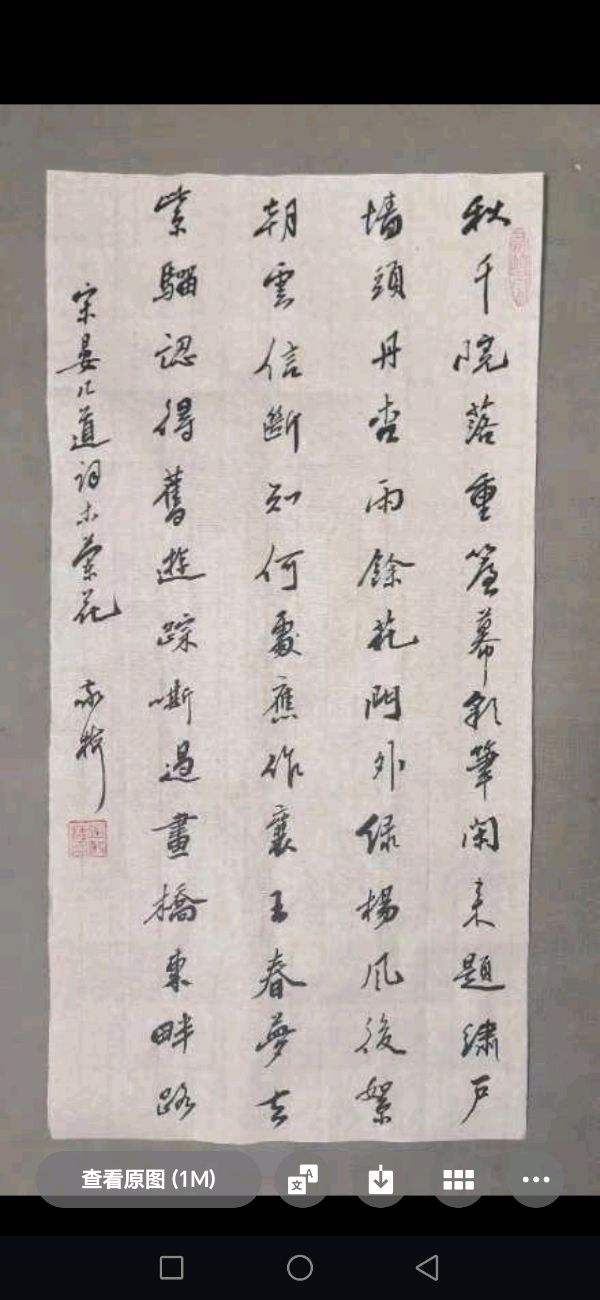 秋千院落重簾幕彩筆閑来題繡戶
墙頭丹杏雨餘花門外緑楊風後絮
朝雲信斷知何處應作襄王春夢去
紫騮認得舊遊踪嘶過畫橋東畔路
宋晏几道词木蘭花
查看原图 (1M)